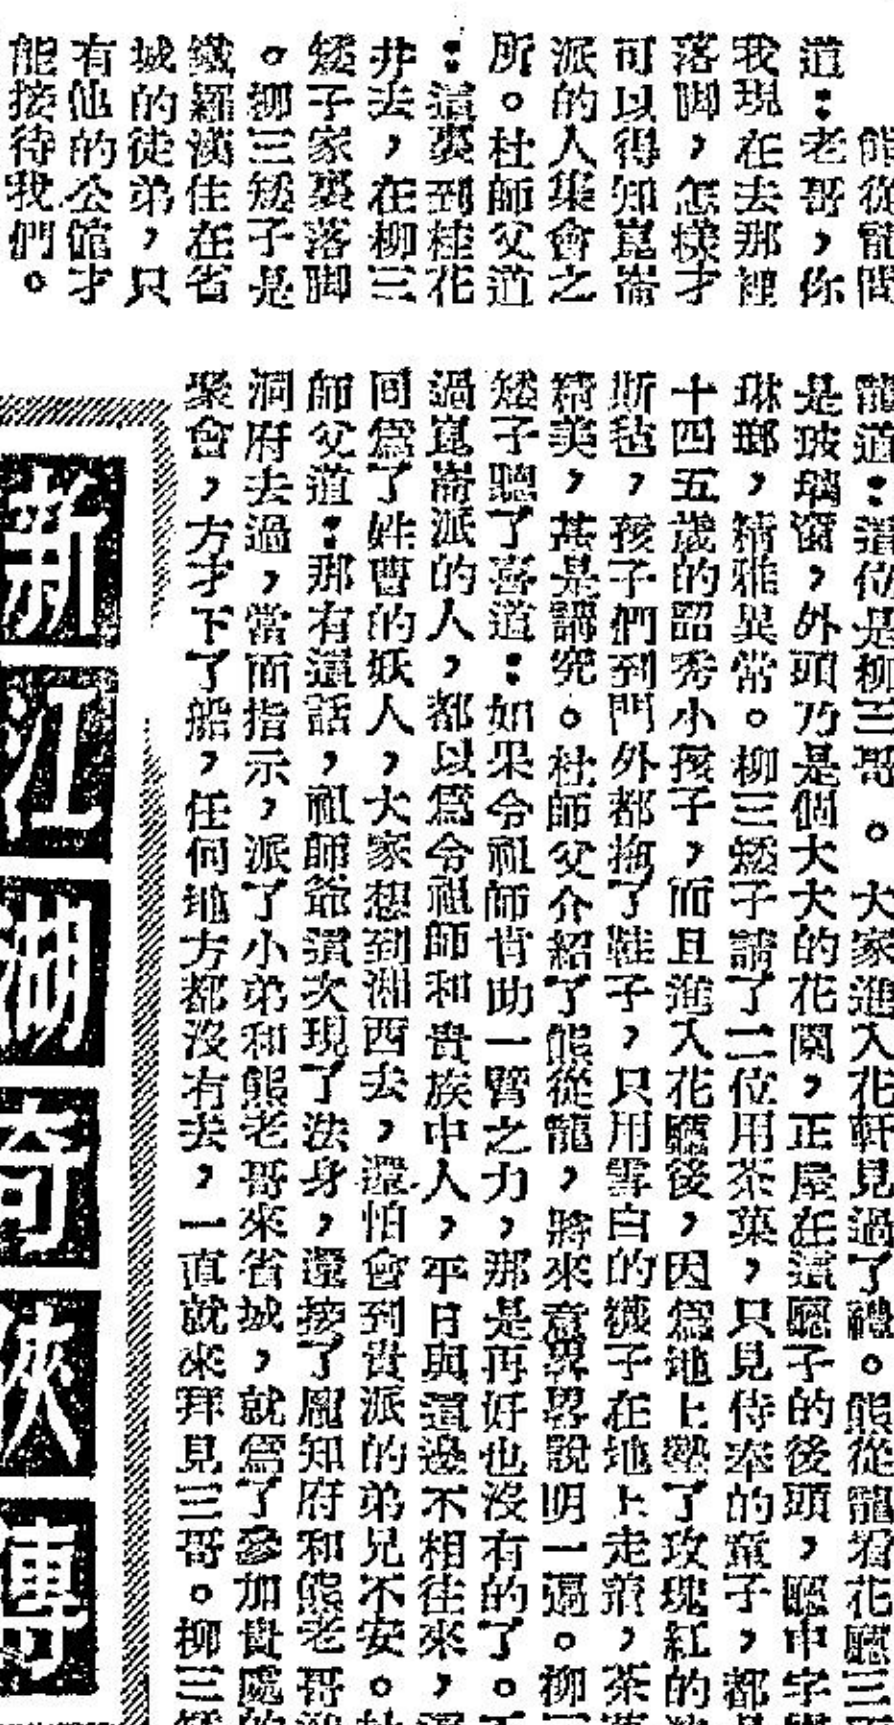 熊從龍問
道：老哥，你
我現在去那裡
落脚，怎樣才
可以得知崑崙
派的人集會之
所。杜師父道
：這裏到桂花
井去，在柳三
矮子家裏落脚
。柳三矮子是
鐵羅漢住在省
城的徒弟，只
有他的公館才
能接待我們。
龍道：這位是柳三哥。大家進入花軒見過了禮。熊從龍看花廳三
是玻璃窗，外頭乃是個大大的花園，正屋在這廳子的後頭，廳中字
琳瑯，精雅異常。柳三矮子請了二位用茶菓，只見侍奉的童子，都
十四五歲的韶秀小孩子，而且進入花廳後，因爲地上墊了玫瑰紅的
斯毡，孩子們到門外都拖了鞋子，只用雪白的襪子在地上走着，茶
精美，甚是講究。杜師父介紹了熊從龍，將來意畧畧說明一遍。柳三
矮子聽了喜道：如果令祖師肯助一臂之力，那是再好也沒有的了。不
過崑崙派的人，都以爲令祖師和貴族中人，平日與這邊不相往來，
同爲了姓曹的妖人，大家想到湘西去，還怕會到貴派的弟兄不安。杜
師父道：那有這話，祖師爺這次現了法身，還接了龐知府和熊老哥
洞府去過，當面指示，派了小弟和熊老哥來省城，就爲了參加貴處的
聚會，方才下了船，任何地方都沒有去，一直就來拜見三哥。柳三矮
新江湖奇俠傳